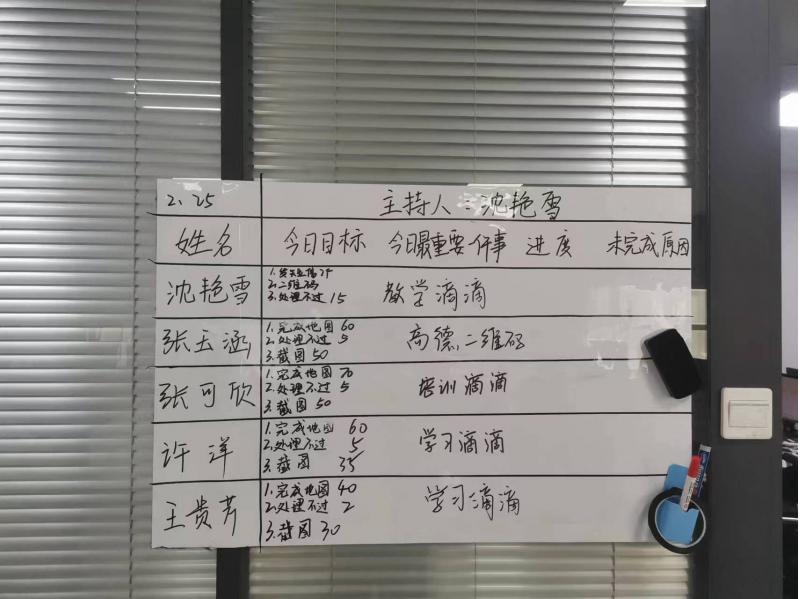 2.25 主持人:沈艳雪
姓名 今日目标 今日最重要一件事 进度 未完成原因
沈艳雪
1.
2.二维码
3.处理不过 15
教学滴滴
张玉涵
1.完成地图 60
2.处理不过 5
3.截图 50
高德,二维码
张可欣
1.完成地图 70
2.处理不过 5
3.截图 50
培训滴滴
许洋
1.完成地图 60
2.处理不过 5
3.截图 35
学习滴滴
王贵芹
1.完成地图 40
2.处理不过 2
3.截图 30
学习滴滴